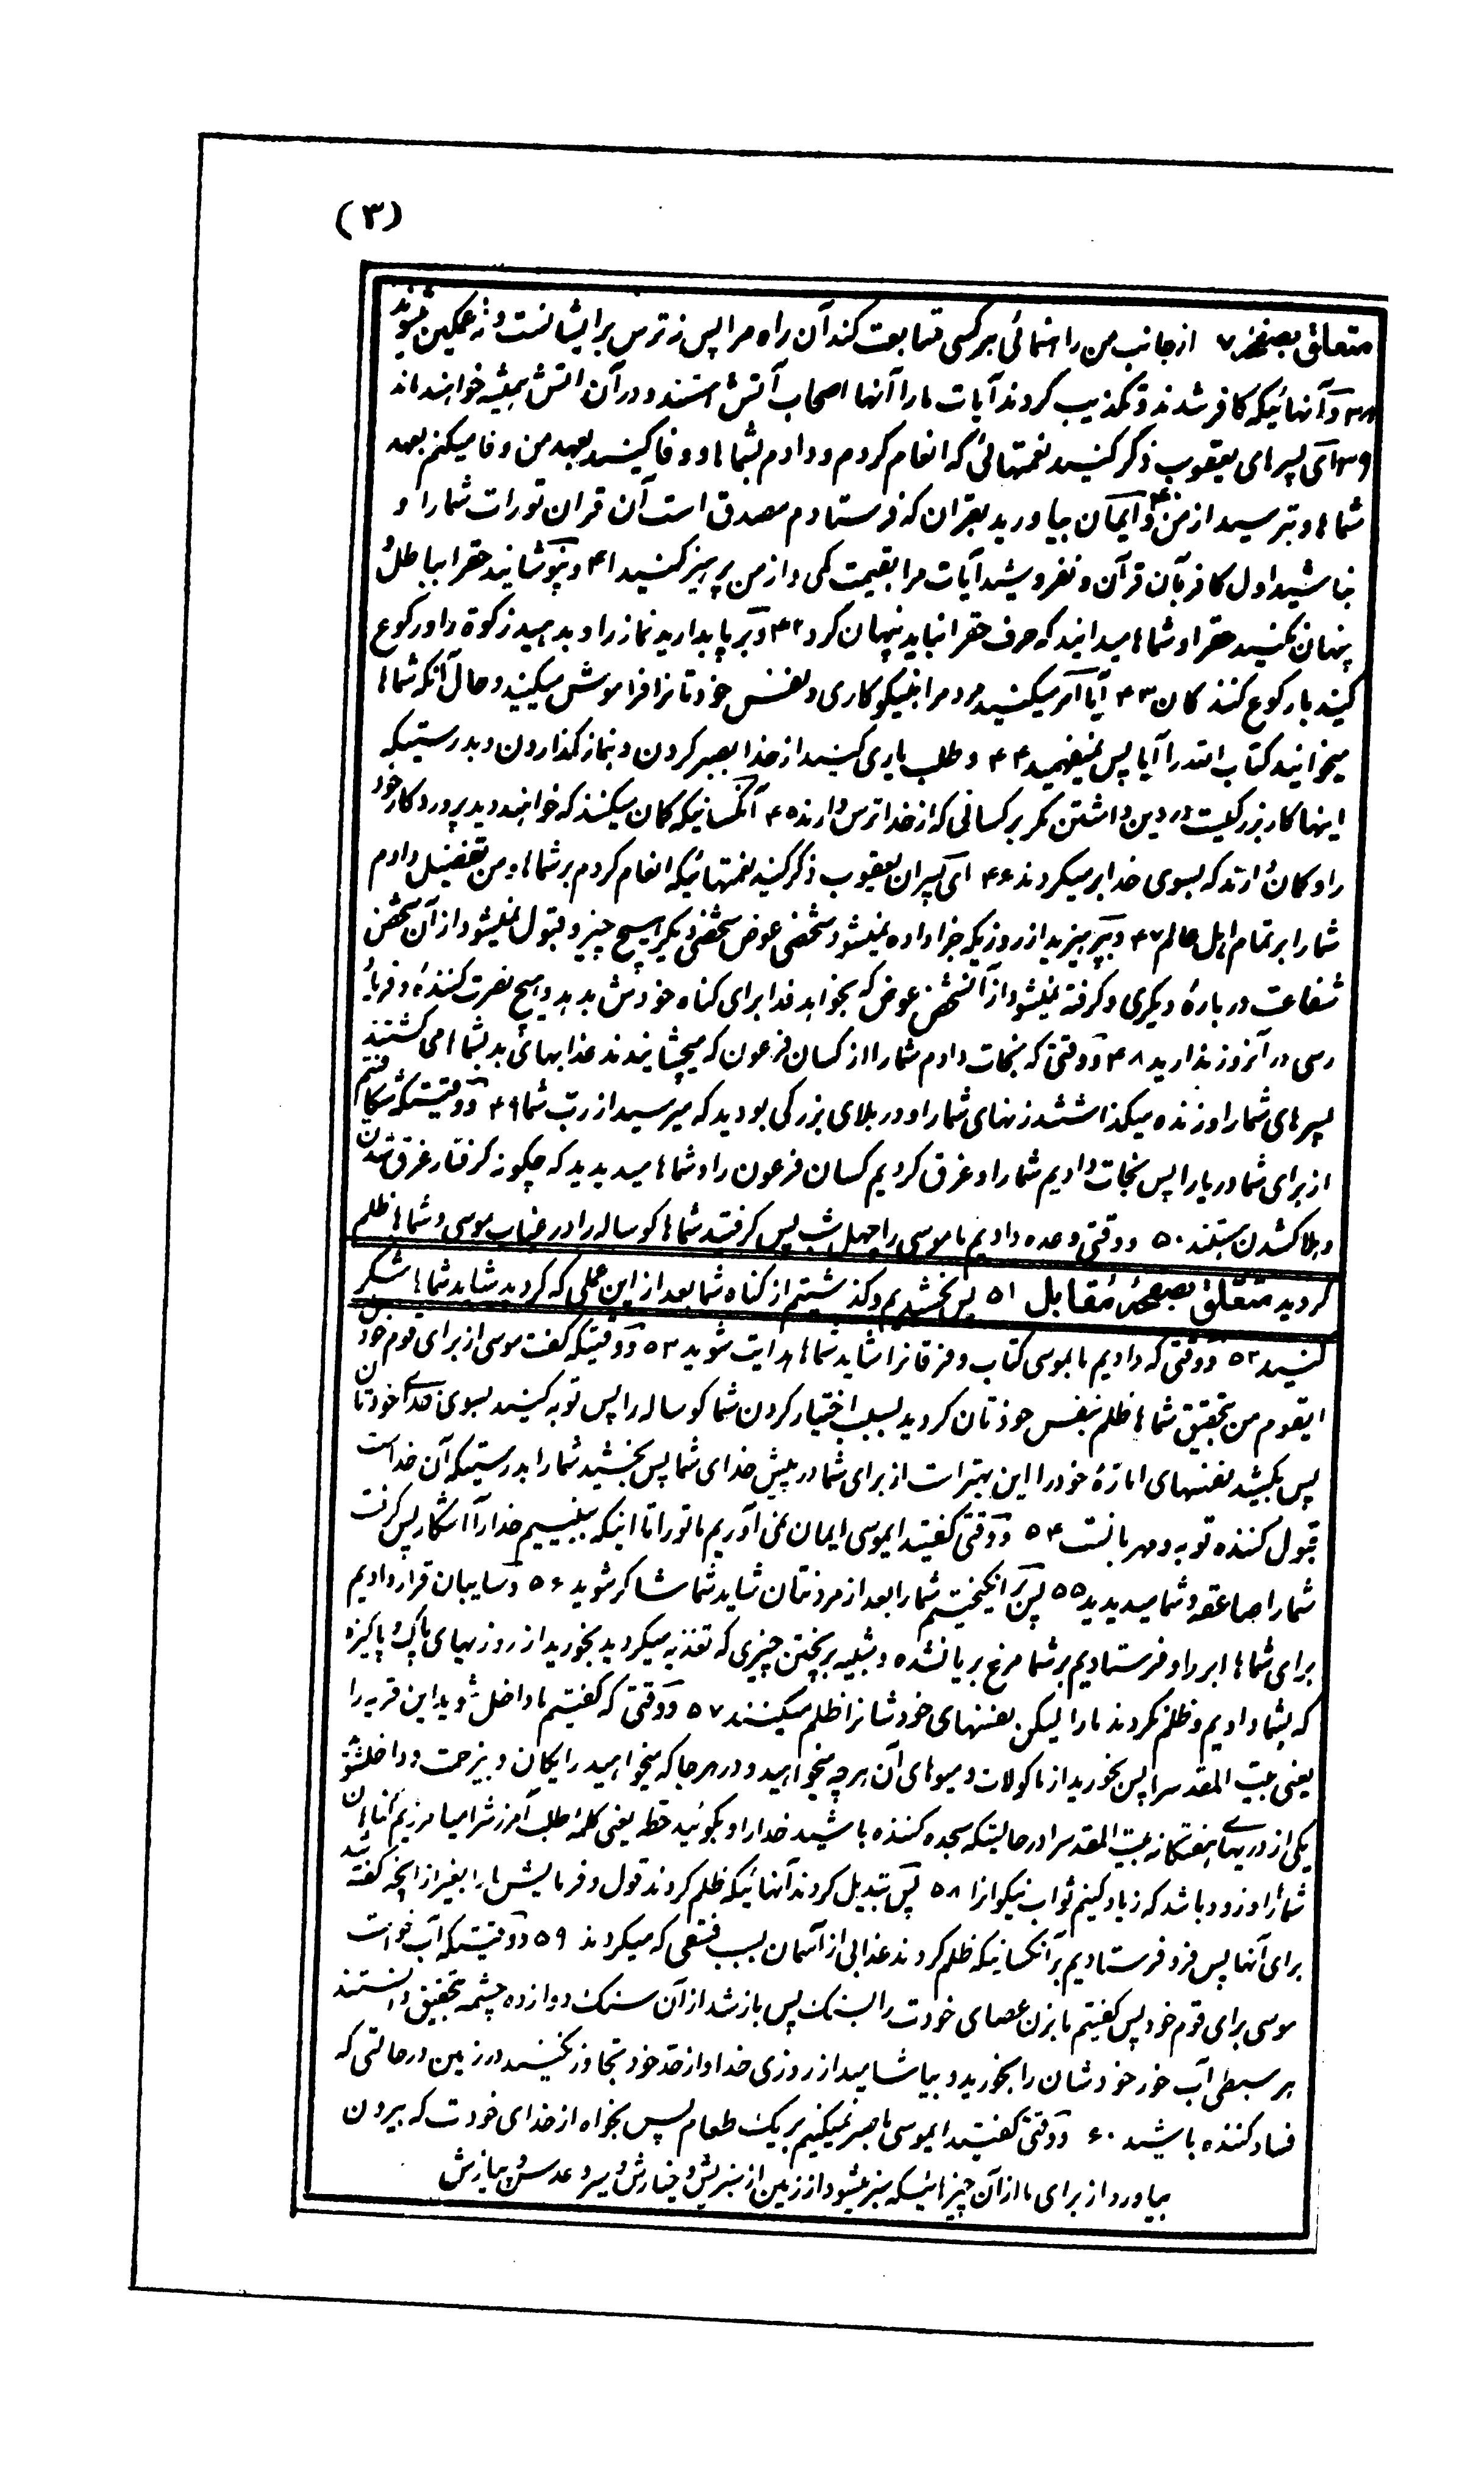 (۳)
متعلق بصفحهٔ ۷ از جانب من راهنمائی هر کسی متابعت کند آن راه مرا پس نه ترس بر ایشانست و نه غمگین میشوند
۳۸ و آنهائیکه کافر شدند و تکذیب کردند آیات ما را آنها اصحاب آتش هستند و در آن آتش همیشه خواهند ماند
۳۹ ای پسرهای یعقوب ذکر کنید نعمتهائی که انعام کردم و دادم بشماها و وفا کنید بعهد من وفا میکنم بعهد
شماها و بترسید از من ۴۰ و ایمان بیاورید بقران که فرستادم مصدق است آن قران تورات شما را و
نباشید اول کافر بآن قرآن و نفروشید آیات مرا بقیمت کمی و از من پرهیز کنید ۴۱ و نپوشانید حقرا بباطل و
پنهان نکنید حقرا و شماها میدانید که حرف حقرا نباید پنهان کرد ۴۲ و بر پا بدارید نماز را و بدهید زکوة را و رکوع
کنید با رکوع کنندکان ۴۳ آیا امر میکنید مردمرا بنیکوکاری و نفس خودتانرا فراموش میکنید و حال آنکه شماها
میخوانید کتاب الله را آیا پس نمیفهمید ۴۴ و طلب یاری کنید از خدا بصبر کردن و بنماز گذاردن و بدرستیکه
اینها کار بزرکیست در دین داشتن مگر بر کسانی که از خدا ترس دارند ۴۵ آنکسانیکه کمان میکنند که خواهند دید پروردکار خود
را و کمان دارند که بسوی خدا بر میکردند ۴۶ ای پسران یعقوب ذکر کنید نعمتهائیکه انعام کردم بر شماها و من تفضیل دادم
شما را بر تمام اهل عالم ۴۷ و بپرهیزید از روزیکه جزا داده نمیشود شخصی عوض شخص دیگر اهیچ چیز و قبول نمیشود از آن شخص
شفاعت در بارهٔ دیکری و کرفته نمیشود از آنشخص عوض که بخواهد فدا برای کناه خودش بدهد و هیچ نصرت کنندهٔ و فریاد
رسی در آنروز ندارید ۴۸ و وقتی که نجات دادم شما را از کسان فرعون که میچشانیدند عذابهای بد بشما می کشتند
پسرهای شما را و زنده میکذاشتند زنهای شما را و در بلای بزرکی بودید که میرسید از رب شما ۴۹ و وقتیکه شکافتیم
از برای شما دریا را پس نجات دادیم شما را و غرق کردیم کسان فرعون را و شماها میدیدید که چکونه کرفتار غرق شدن
و هلاکشدن هستند ۵۰ و وقتی وعده دادیم ما موسی را چهل شب پس کرفتید شماها کوساله را در غیاب موسی و شماها ظلم
کردید متعلق بصفحهٔ مقابل ۵۱ پس بخشیدیم و کذشتیم از کناه شما بعد از این عملی که کردید شاید شماها شکر
کنید ۵۲ و وقتی که دادیم ما بموسی کتاب و فرقانرا شاید شماها هدایت شوید ۵۳ و وقتیکه کفت موسی از برای قوم خود
ایقوم من بتحقیق شماها ظلم بنفس خودتان کردید بسبب اختیار کردن شما کوساله را پس توبه کنید بسوی خدای خودتان
پس بکشید نفسهای امارهٔ خود را این بهتر است از برای شما در پیش خدای شما پس بخشید شما را بدرستیکه آن خداست
قبول کننده توبه و مهربانست ۵۴ و وقتی کفتید ایموسی ایمان نمی آوریم ما تو را تا اینکه ببینیم خدا را آشکار پس کرفت
شما را صاعقه و شما میدیدید ۵۵ پس بر انکیختیم شما را بعد از مردنتان شاید شما شاکر شوید ۵۶ و سایبان قرار دادیم
برای شماها ابر را و فرستادیم بر شما مرغ بریانشده و شبیه بریختن چیزی که تغذیه میکردید بخورید از روزیهای پاک و پاکیزه
که بشما دادیم و ظلم نکردند ما را لیکن نفسهای خودشانرا ظلم میکنند ۵۷ و وقتی که کفتیم ما داخل شوید این قریه را
یعنی بیت المقدسرا پس بخورید از ماکولات و میوهای آن هر چه میخواهید و در هر جا که میخواهید رایکان و بیزحمت و داخلشو
یکی از دریهای هفتکانه بیت المقدسرا در حالیکه سجده کننده باشید خدا را و بکوئید حطه یعنی کلمهٔ طلب آمرزشرا میامرزیم کناهان
شما را و زود باشد که زیاد کنیم ثواب نیکوانرا ۵۸ پس تبدیل کردند آنهائیکه ظلم کردند قول و فرمایش ما را بغیر از آنچه کفته شد
برای آنها پس فرو فرستادیم بر آنکسانیکه ظلم کردند عذابی از آسمان بسبب فسقی که میکردند ۵۹ و وقتیکه آب خواست
موسی برای قوم خود پس کفتیم ما بزن عصای خودت را بسنک پس باز شد از آن سنک دوازده چشمه بتحقیق دانستند
هر سبطی آب خور خودشان را بخورید و بیاشامید از روزی خدا و از حد خود تجاوز نکنید در زمین در حالتی که
فساد کننده باشید ۶۰ و وقتی کفتید ایموسی ما صبر نمیکنیم بر یک طعام پس بخواه از خدای خودت که بیرون
بیاورد از برای ما از آن چیزهائیکه سبز میشود از زمین از سبزیش و خیارش و سیر و عدس و پیازش